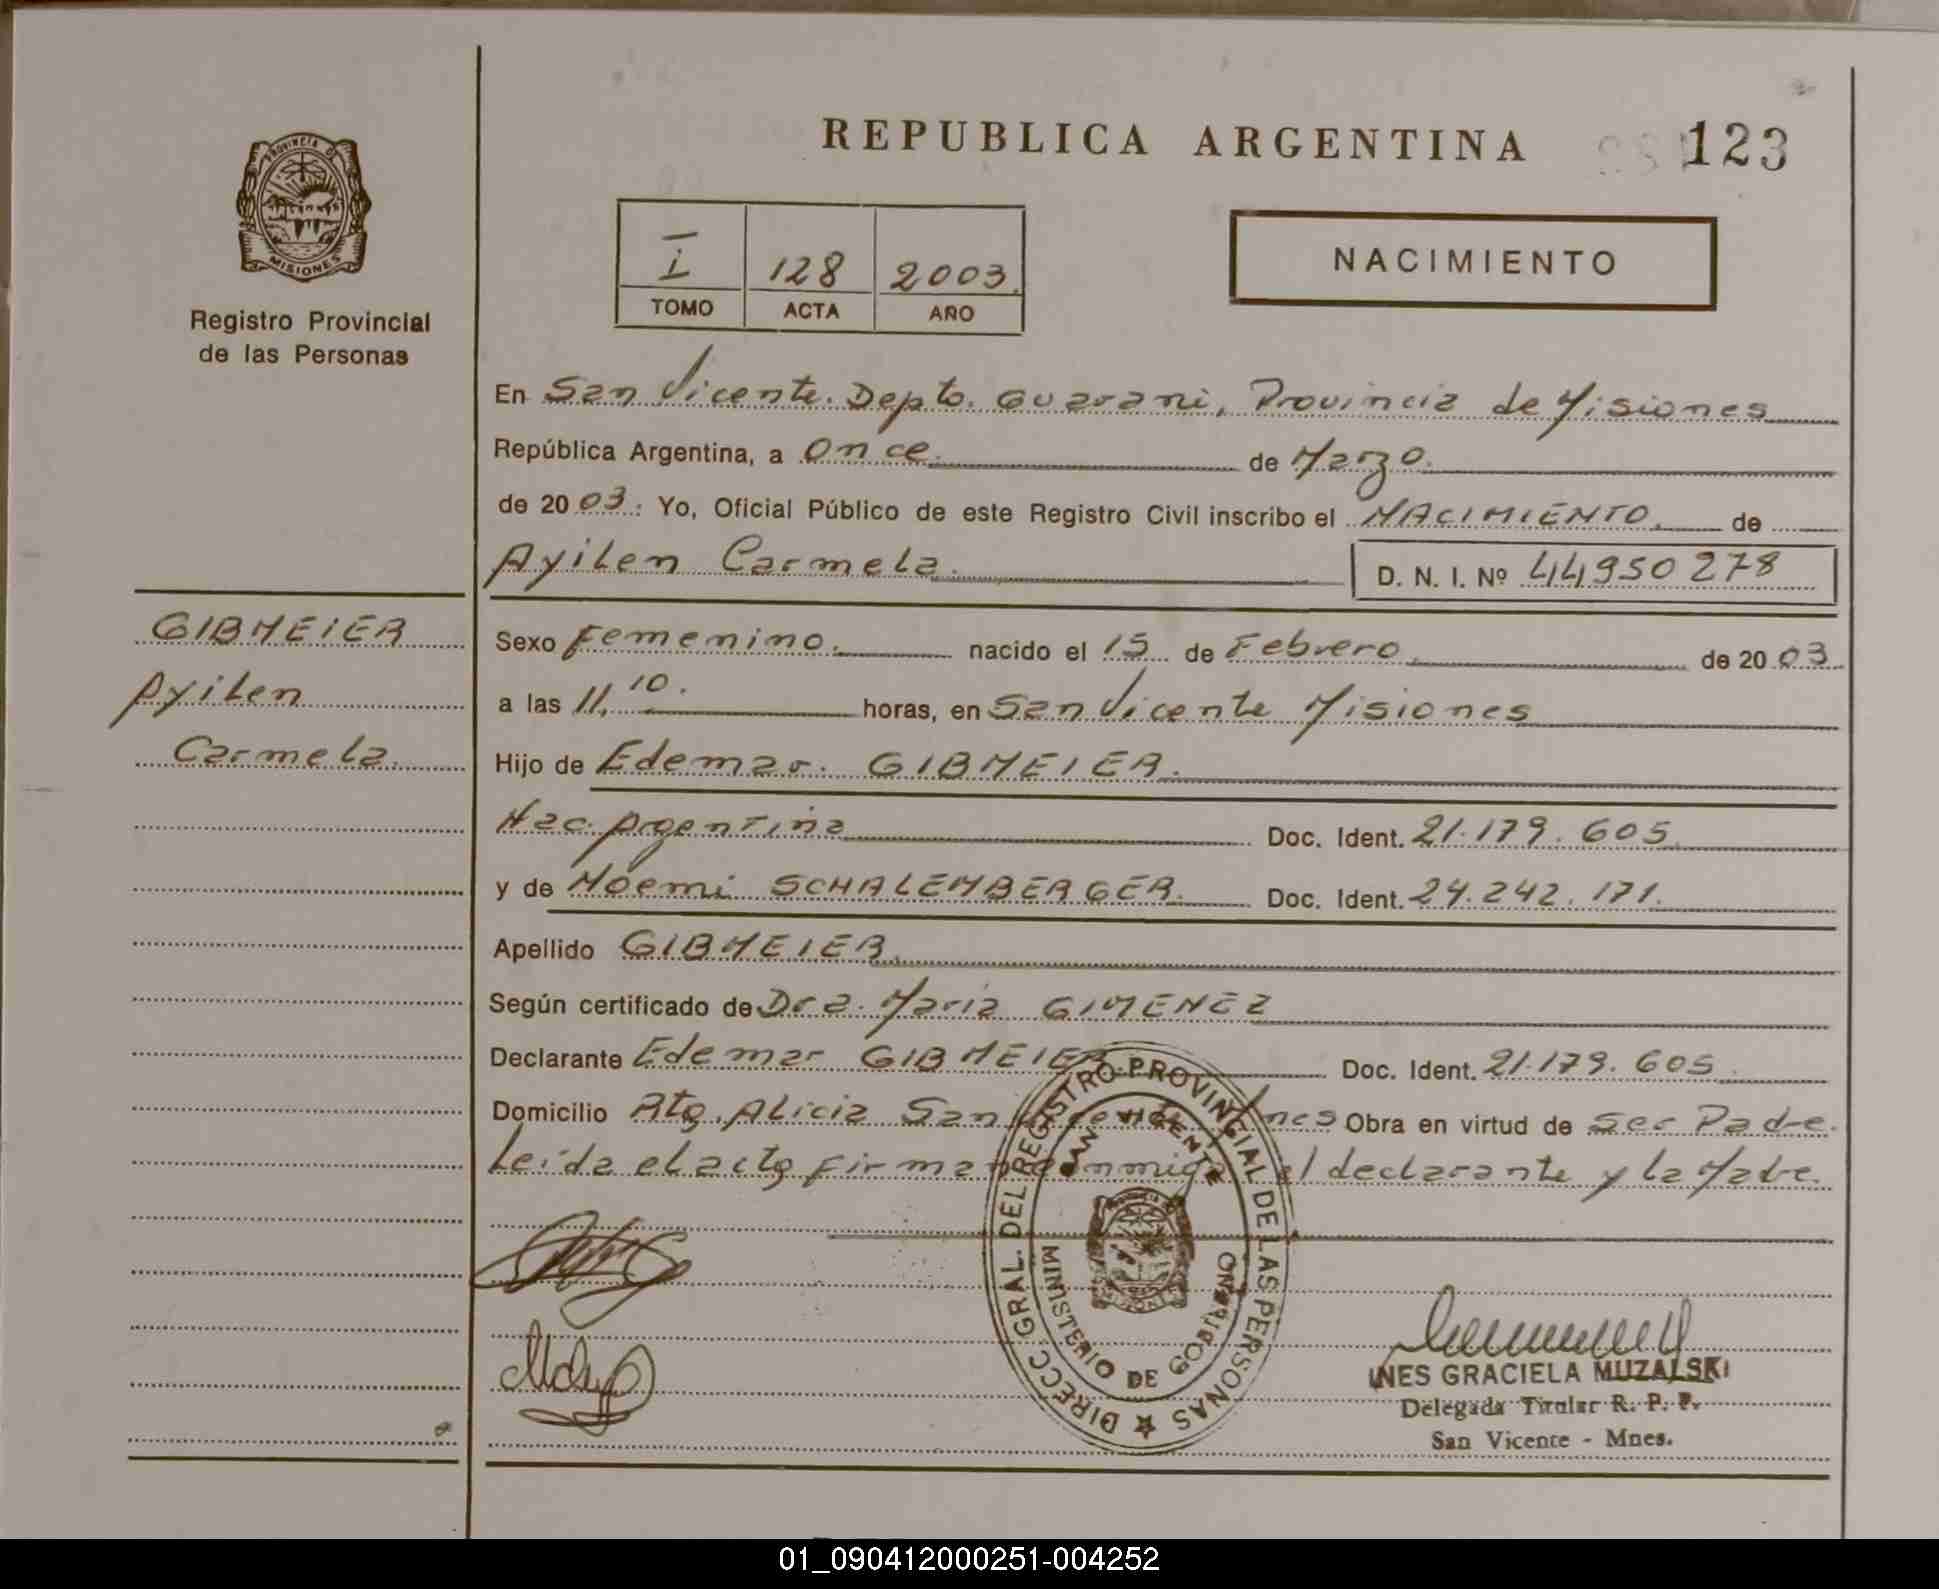 REPUBLICA ARGENTINA 123
PROVINCIA DE
MISIONES
Registro Provincial
de las Personas
I 128 2003.
TOMO ACTA AÑO
NACIMIENTO
En San Vicente. Depto. Guarani, Provincia de Misiones
República Argentina, a Once. de Marzo.
de 20 03. Yo, Oficial Público de este Registro Civil inscribo el NACIMIENTO. de
Ayilen Carmela. D. N. I. Nº 44950278
GIBMEIER
Ayilen
Carmela.
Sexo Femenino. nacido el 15 de Febrero de 20 03
a las 11,10. horas, en San Vicente Misiones
Hijo de Edemar. GIBMEIER.
Nac. Argentina Doc. Ident. 21.179.605
y de Noemi SCHALEMBERGER. Doc. Ident. 24.242.171.
Apellido GIBMEIER.
Según certificado de Dra. Maria GIMENEZ
Declarante Edemar GIBMEIER Doc. Ident. 21.179.605
Domicilio Alicia San Vicente Mnes Obra en virtud de Ser Padre.
Leída el acta firman conmigo el declarante y la Madre.
DIRECC GRAL. DEL REGISTRO PROVINCIAL DE LAS PERSONAS
SAN VICENTE
MINISTERIO DE GOBIERNO
INES GRACIELA MUZALSKI
Delegada Titular R. P. P.
San Vicente - Mnes.
01_090412000251-004252